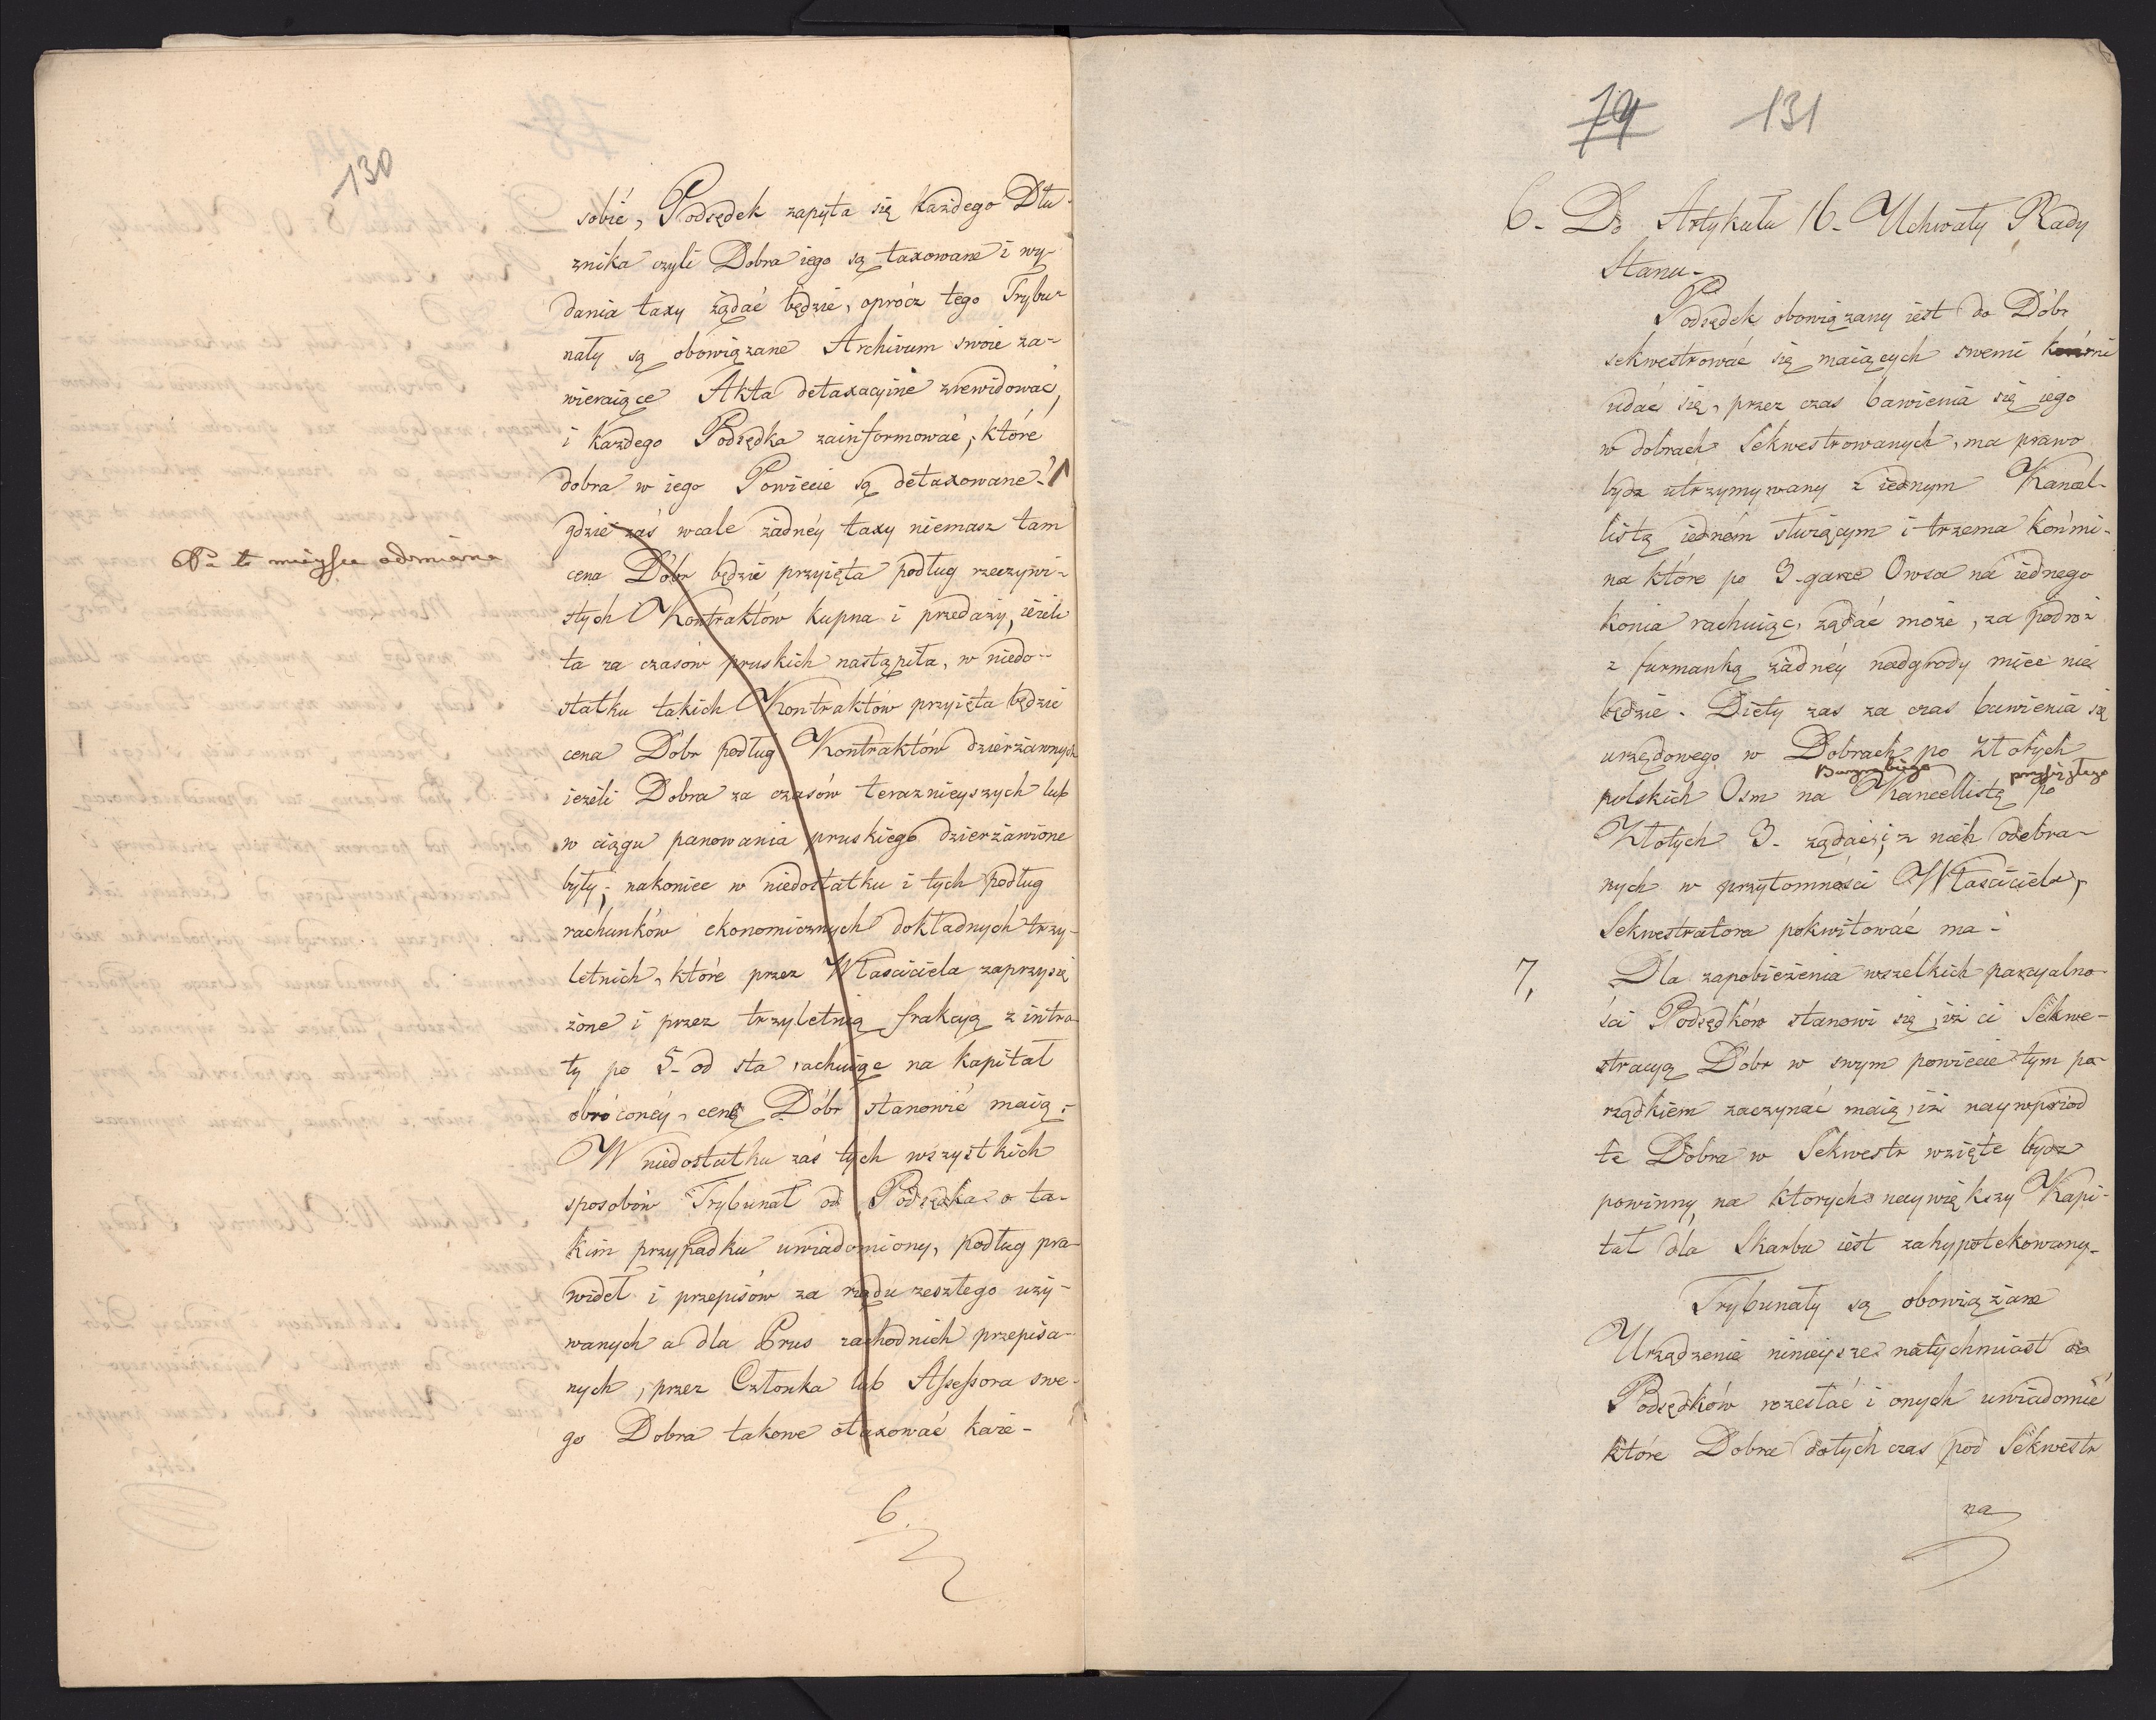 130
sobie, Podsędek zapyta się każdego Dłu-
żnika czyli Dobra iego są taxowane i wy-
dania taxy żądać będzie, oprócz tego Trybu-
nały są obowiązane Archivum swoie za-
wieraiące Akta detaxacyine zrewidować,
i każdego Podsędka zainformować, które
dobra w iego Powiecie są detaxowane.
gdzie zaś wcale żadnéy taxy niemasz tam
Na to mieysce odmiana
cena Dóbr będzie przyięta podług rzeczywi-
stych Kontraktów kupna i przedaży, ieżeli
ta za czasów pruskich nastąpiła, w niedo-
statku takich Kontraktów przyięta będzie
cena Dóbr podług Kontraktów dzierżawnych
ieżeli Dobra za czasów teraznieyszych lub
w ciągu panowania pruskiego dzierżawione
były; nakoniec w niedostatku i tych podług
rachunków ekonomicznych dokładnych trzy-
letnich, które przez Właściciela zaprzysię
żone i przez trzyletnią frakcyą z intra-
ty po 5. od sta rachuiąc na kapitał
obróconéy, cenę Dóbr stanowić maią;
W niedostatku zaś tych wszystkich
sposobów Trybunał od Podsędka o ta-
kim przypadku uwiadomiony, podług pra-
wideł i przepisów za rządu zeszłego uży-
wanych a dla Prus zachodnich przepisa-
nych, przez Członka lub Assessora swe-
go Dobra takowe otaxować każe-
6.
79 131
6. Do Artykułu 16. Uchwały Rady
Stanu-
Podsędek obowiązany iest do Dóbr
sekwestrować się maiących swemi końmi
udać się, przez czas bawienia się iego
w dobrach Sekwestrowanych, ma prawo
bydz utrzymywany z iednym Kancel-
listą iedném służącym i trzema końmi-
na które po 3. garce Owsa na iednego
konia rachuiąc, żądać może, za podroż
z furmanką żadnéy nadgrody miec nie
będzie. Diety zas za czas bawienia się
urzędowego w Dobrach po Złotych
przysięgłego
polskich Osm na Kancellistę po
Złotych 3. żądać, i z nich odebra-
nych w przytomności Właściciela,
Sekwestratora pokwitować ma-
7, Dla zapobieżenia wszelkich parcyalno-
ści Podsędków stanowi się, iż ci Sekwe-
stracyą Dóbr w swym powiecie tym po-
rządkiem zaczynać maią, iż naywprzód
te Dobra w Sekwestr wzięte bydz
powinny, na ktorych naywiększy Kapi-
tał dla Skarbu iest zahypotekowany.
Trybunały są obowiązane
Urządzenie ninieysze natychmiast do
Podsędków rozesłać i onych uwiadomić
które Dobra dotychczas pod Sekwestr
na